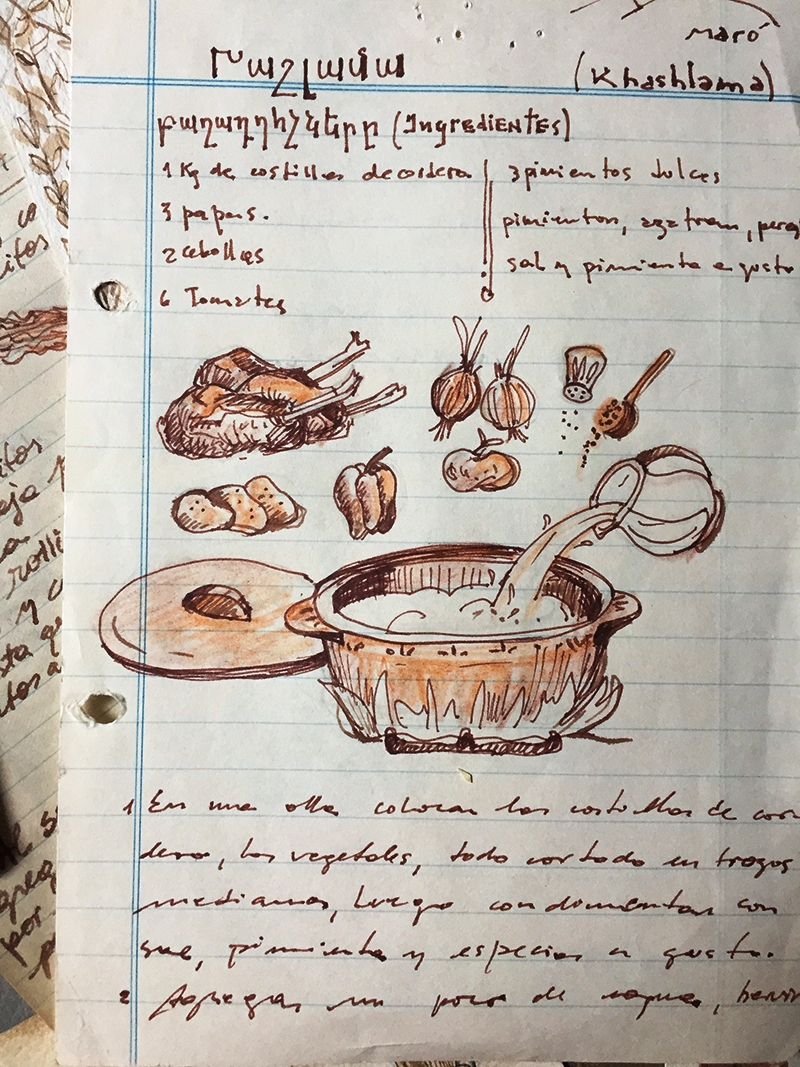 Maró
Խաշլամա (Khashlama)
բաղադրիչները (Ingredientes)
1 Kg de costillas de cordero
3 papas.
2 cebollas
6 Tomates
3 pimientos dulces
pimienton, azafran, pere
sal y pimienta a gusto
1 En una olla colocar las costillas de cor
dero, los vegetales, todo cortado en trozos
medianos, luego condimentar con
sal, pimienta y especias a gusto.
2 Agregar un poco de agua, hervir
itos